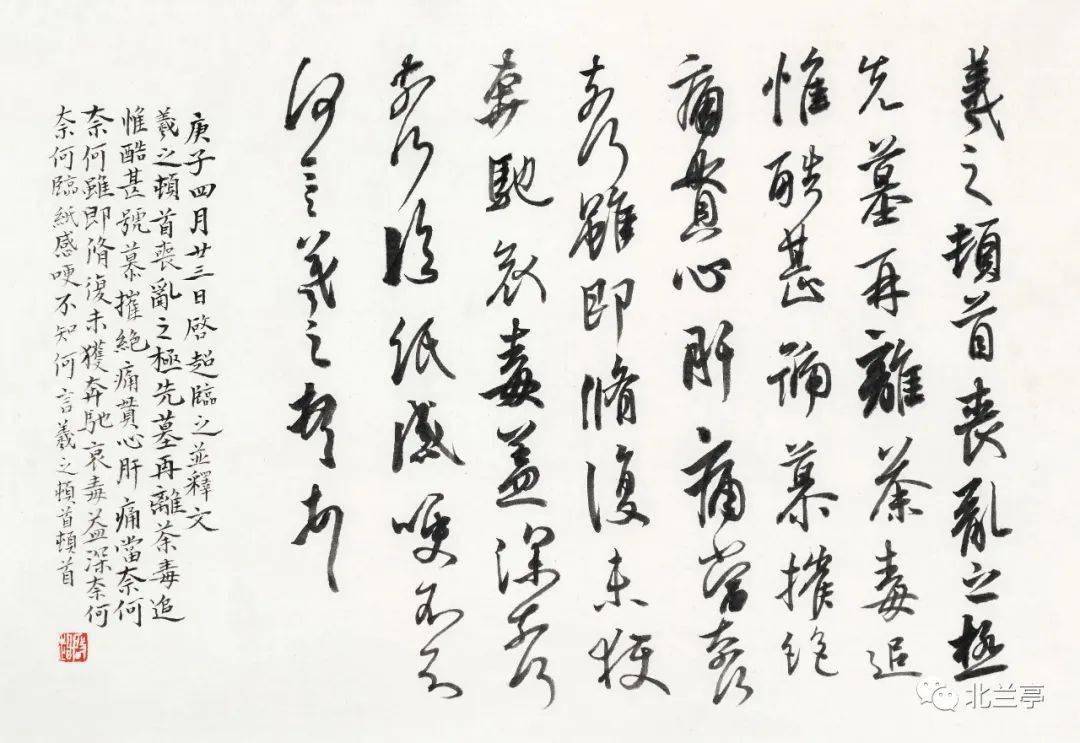 羲之頓首喪亂之極
先墓再離荼毒追
惟酷甚號慕摧絶
痛貫心肝痛當奈何
奈何雖即脩復未獲
奔馳哀毒益深奈何
奈何臨紙感哽不知
何言羲之頓首頓首
庚子四月廿三日啓超臨之並釋文
羲之頓首喪亂之極先墓再離荼毒追
惟酷甚號慕摧絶痛貫心肝痛當奈何
奈何雖即脩復未獲奔馳哀毒益深奈何
奈何臨紙感哽不知何言羲之頓首頓首
北兰亭